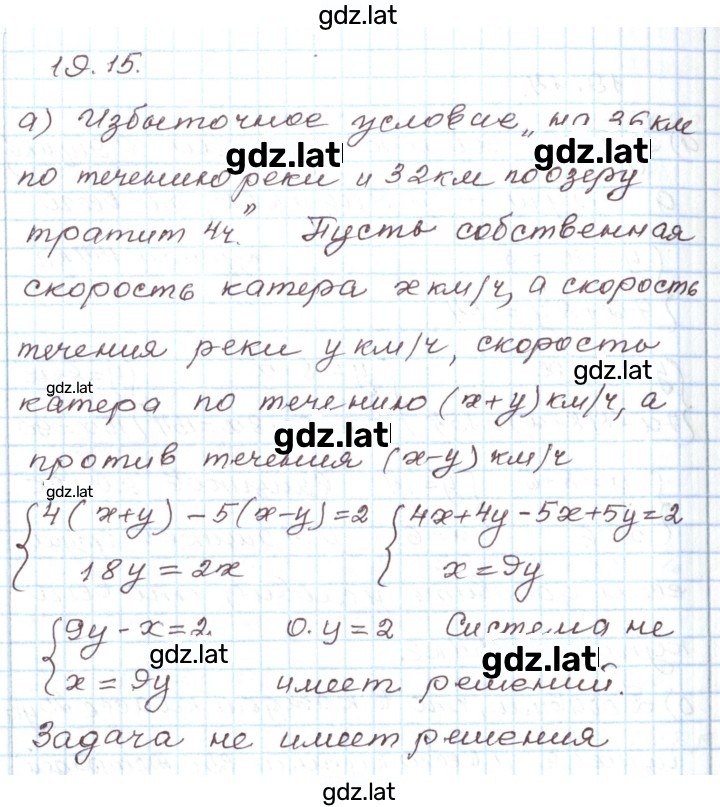 gdz.lat
19.15.
а) Избыточное условие „на 36 км
gdz.lat gdz.lat
по течению реки и 32 км по озеру
тратит 4ч.” Пусть собственная
скорость катера x км/ч, а скорость
течения реки y км/ч, скорость
gdz.lat gdz.lat
катера по течению (x+y) км/ч, а
gdz.lat
против течения (x-y) км/ч
gdz.lat
{4(x+y) - 5(x-y) = 2 {4x+4y-5x+5y=2
18y = 2x x = 9y
{9y - x = 2 0·y = 2 Система не
gdz.lat gdz.lat
x = 9y имеет решений.
Задача не имеет решения
gdz.lat